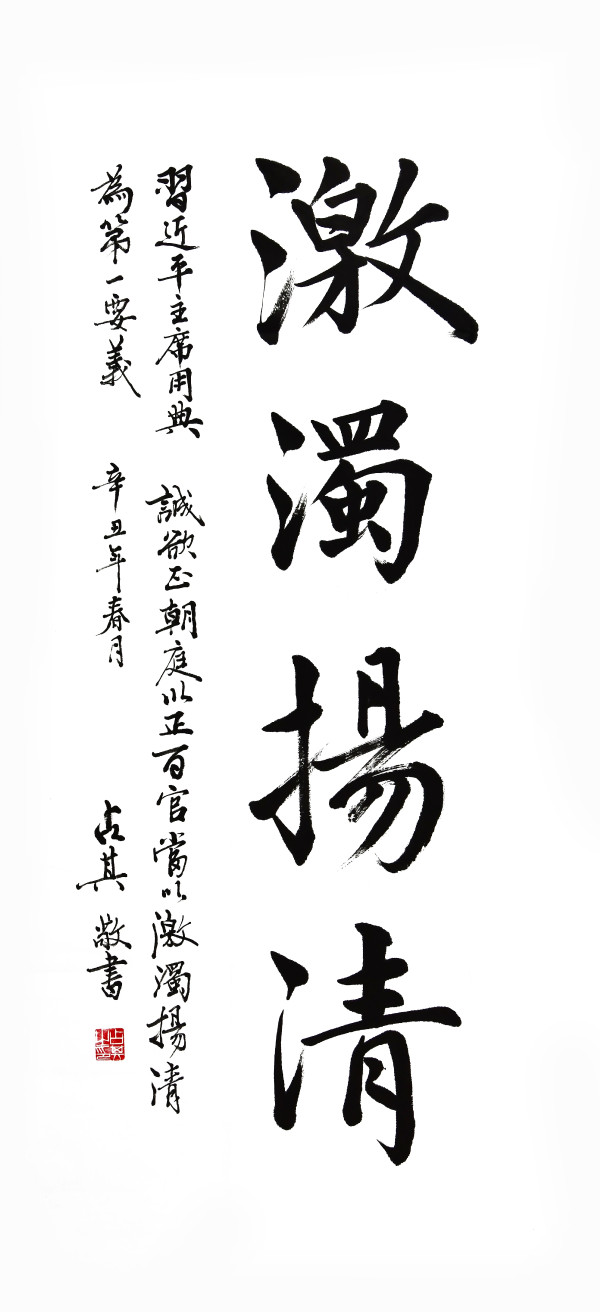 激濁揚清
習近平主席用典 誠欲正朝庭以正百官當以激濁揚清
為第一要義 辛丑年春月 占其 敬書